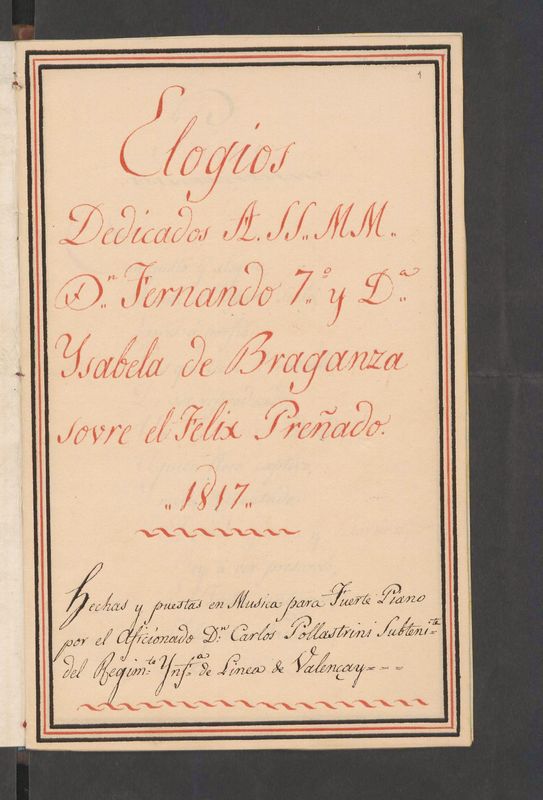 1
Elogios
Dedicados A. SS.. MM..
D.ⁿ Fernando 7.º y D.ª
Ysabela de Braganza
sovre el Felix Preñado.
„ 1817 „
Hechas y puestas en Musica para Fuerte Piano
por el Aficionado D.ⁿ Carlos Pollastrini Subteni.te
del Regim.to Ynf.ª de Linea de Valençay---